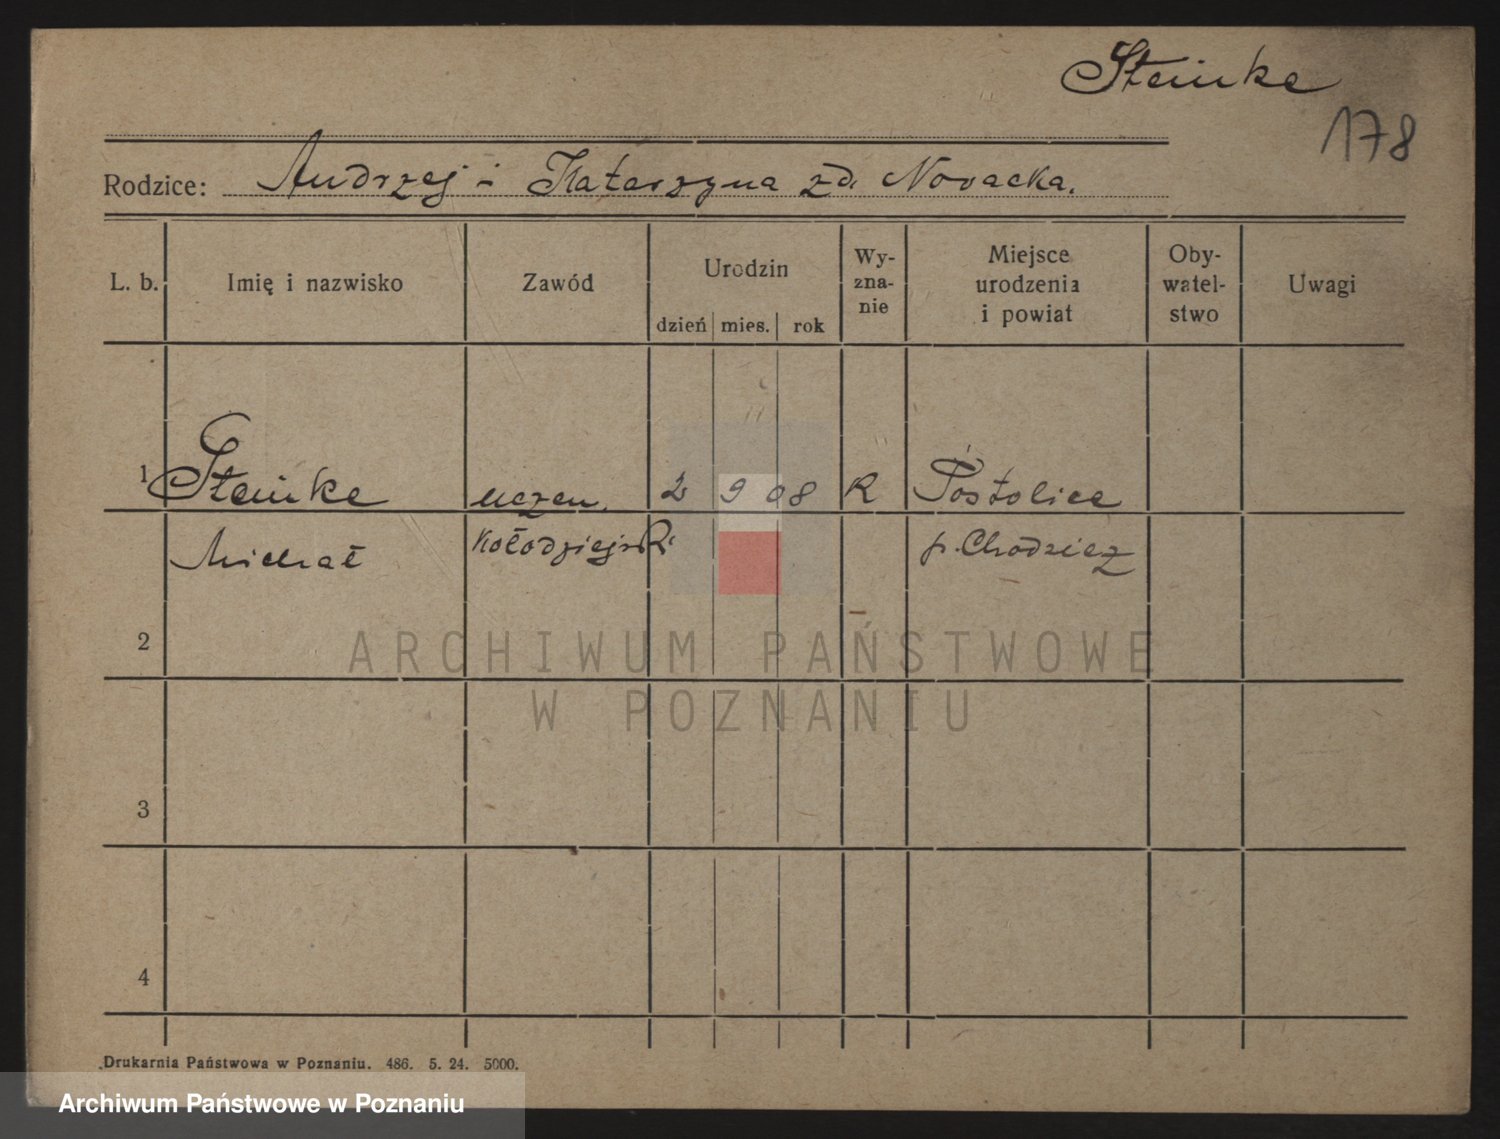 Steinke
178
Rodzice: Andrzej i Katarzyna zd. Nowacka.
L. b. Imię i nazwisko Zawód Urodzin dzień mies. rok Wy-zna-nie Miejsce urodzenia i powiat Oby-watel-stwo Uwagi
1 Steinke uczen. 2 9 08 R Postolice
Michał Kołodziejsk. p. Chodzież
2
ARCHIWUM PAŃSTWOWE
W POZNANIU
3
4
Drukarnia Państwowa w Poznaniu. 486. 5. 24. 5000.
Archiwum Państwowe w Poznaniu